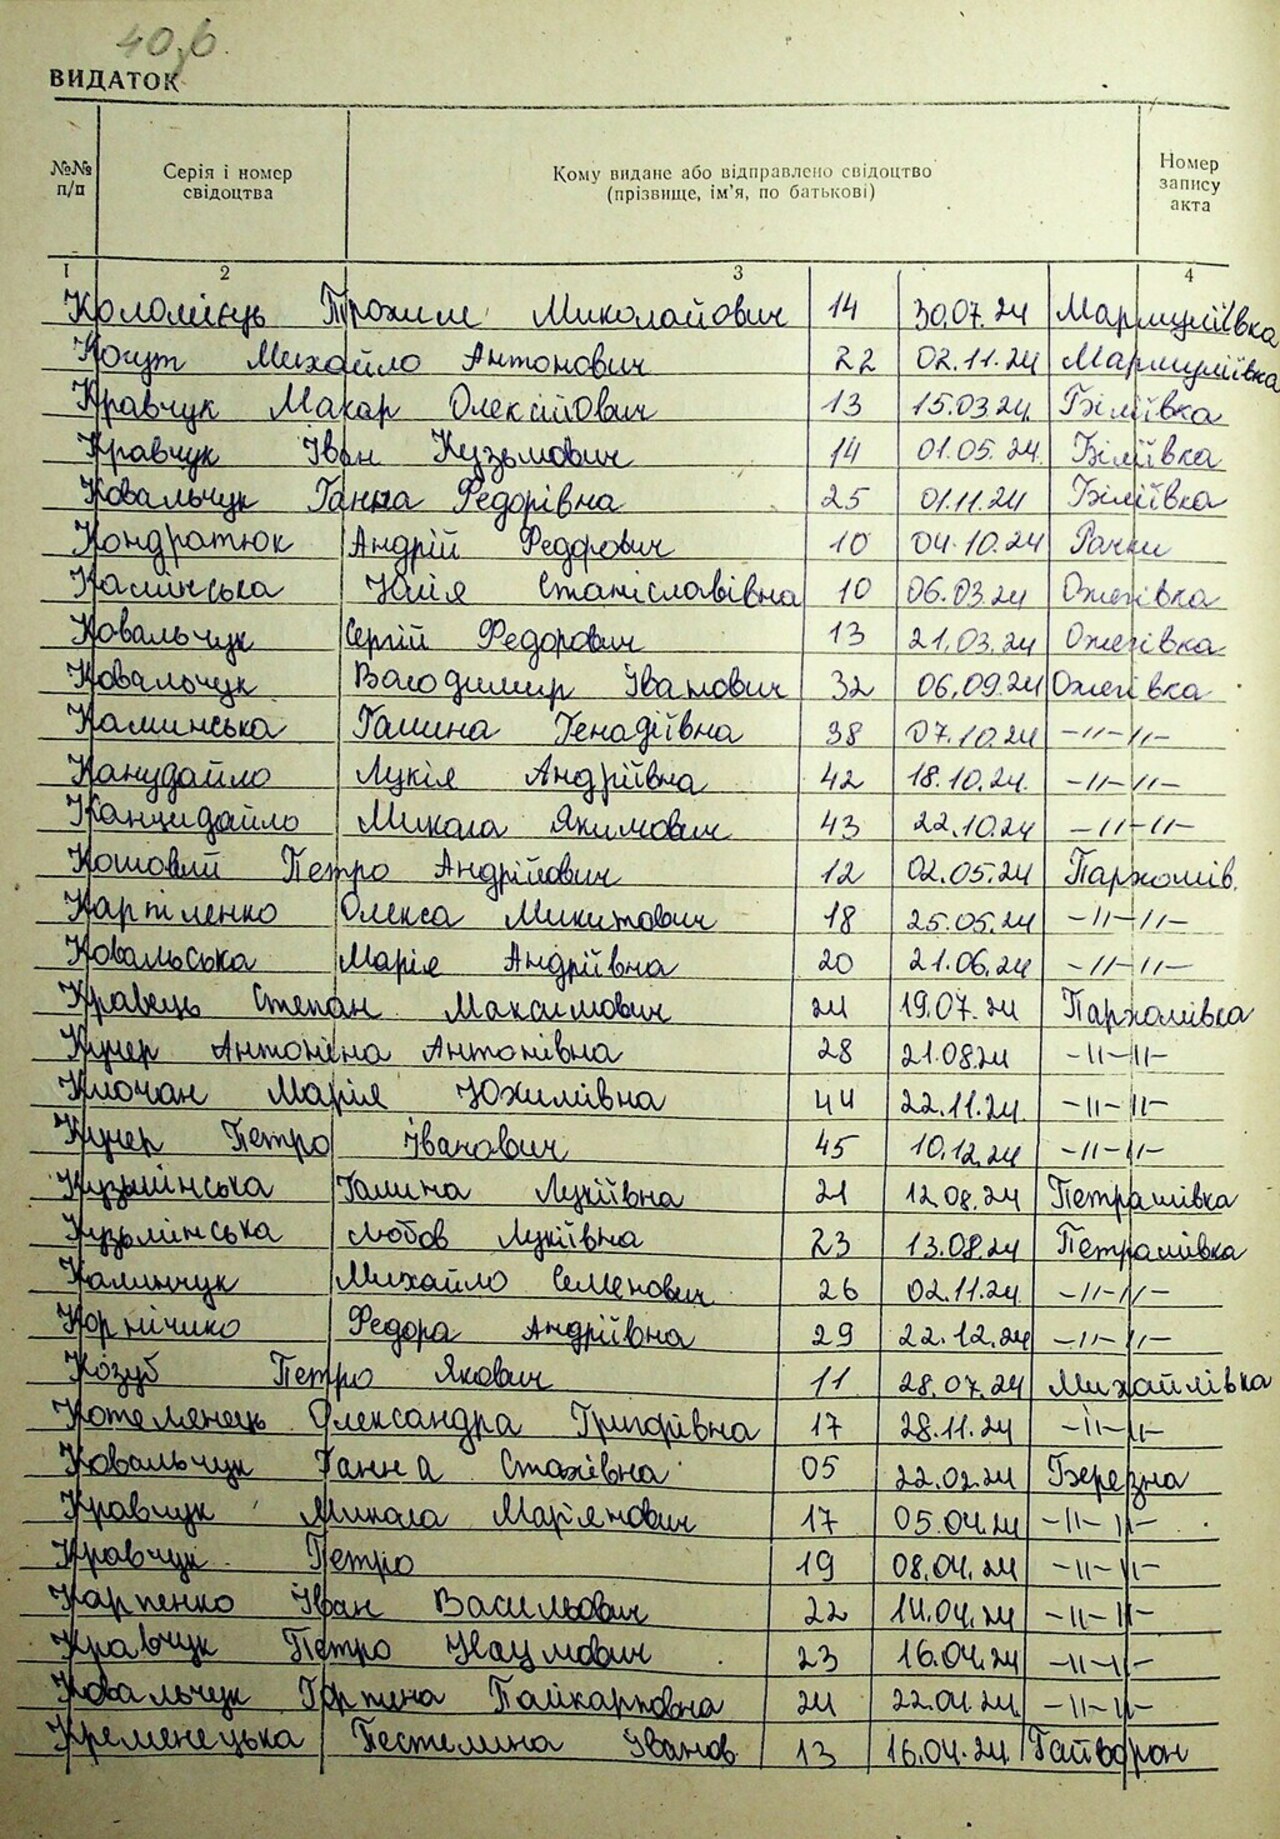 40,б.
ВИДАТОК
№№ п/п Серія і номер свідоцтва Кому видане або відправлено свідоцтво (прізвище, ім'я, по батькові) Номер запису акта
1 2 3 4
Коломієць Трохим Миколайович 14 30.07.24 Мармуліївка
Когут Михайло Антонович 22 02.11.24 Мармуліївка
Кравчук Макар Олексійович 13 15.03.24 Біліївка
Кравчук Іван Кузьмович 14 01.05.24. Біліївка
Ковальчук Ганна Федорівна 25 01.11.24 Біліївка
Кондратюк Андрій Федорович 10 04.10.24 Рачки
Камінська Юлія Станіславівна 10 06.03.24 Ожегівка
Ковальчук Сергій Федорович 13 21.03.24 Ожегівка
Ковальчук Володимир Іванович 32 06.09.24 Ожегівка
Каминська Галина Генадіївна 38 07.10.24 -"-"-
Канудайло Лукія Андріївна 42 18.10.24. -"-"-
Канцидайло Микола Якимович 43 22.10.24 -"-"-
Кошовий Петро Андрійович 12 02.05.24 Пархомів.
Карпіленко Олекса Микитович 18 25.05.24 -"-"-
Ковальська Марія Андріївна 20 21.06.24 -"-"-
Кравець Степан Максимович 24 19.07.24 Пархомівка
Кучер Антоніна Антонівна 28 21.08.24 -"-"-
Клочан Марія Юхимівна 44 22.11.24. -"-"-
Кучер Петро Іванович 45 10.12.24 -"-"-
Кузьмінська Галина Лукіївна 21 12.08.24 Петрашівка
Кузьмінська Любов Лукіївна 23 13.08.24 Петрашівка
Калинчук Михайло Семенович 26 02.11.24 -"-"-
Корнічико Федора Андріївна 29 22.12.24 -"-"-
Козуб Петро Якович 11 28.07.24 Михайлівка
Котеменець Олександра Григорівна 17 28.11.24 -"-"-
Ковальчук Ганна Стахівна 05 22.02.24 Березна
Кравчук Микола Мар'янович 17 05.04.24 -"-"-
Кравчук Петро 19 08.04.24 -"-"-
Карпенко Іван Васильович 22 14.04.24 -"-"-
Кравчук Петро Наумович 23 16.04.24 -"-"-
Ковальчук Горпена Полікарповна 24 22.04.24. -"-"-
Кременецька Пестелина Іванов. 13 16.04.24. Гайворон